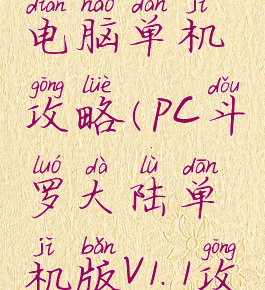 diàn nǎo dān jī
电脑单机
gōng lüè dǒu
攻略(PC斗
luó dà lù dān
罗大陆单
jī bǎn gōng
机版V1.1攻